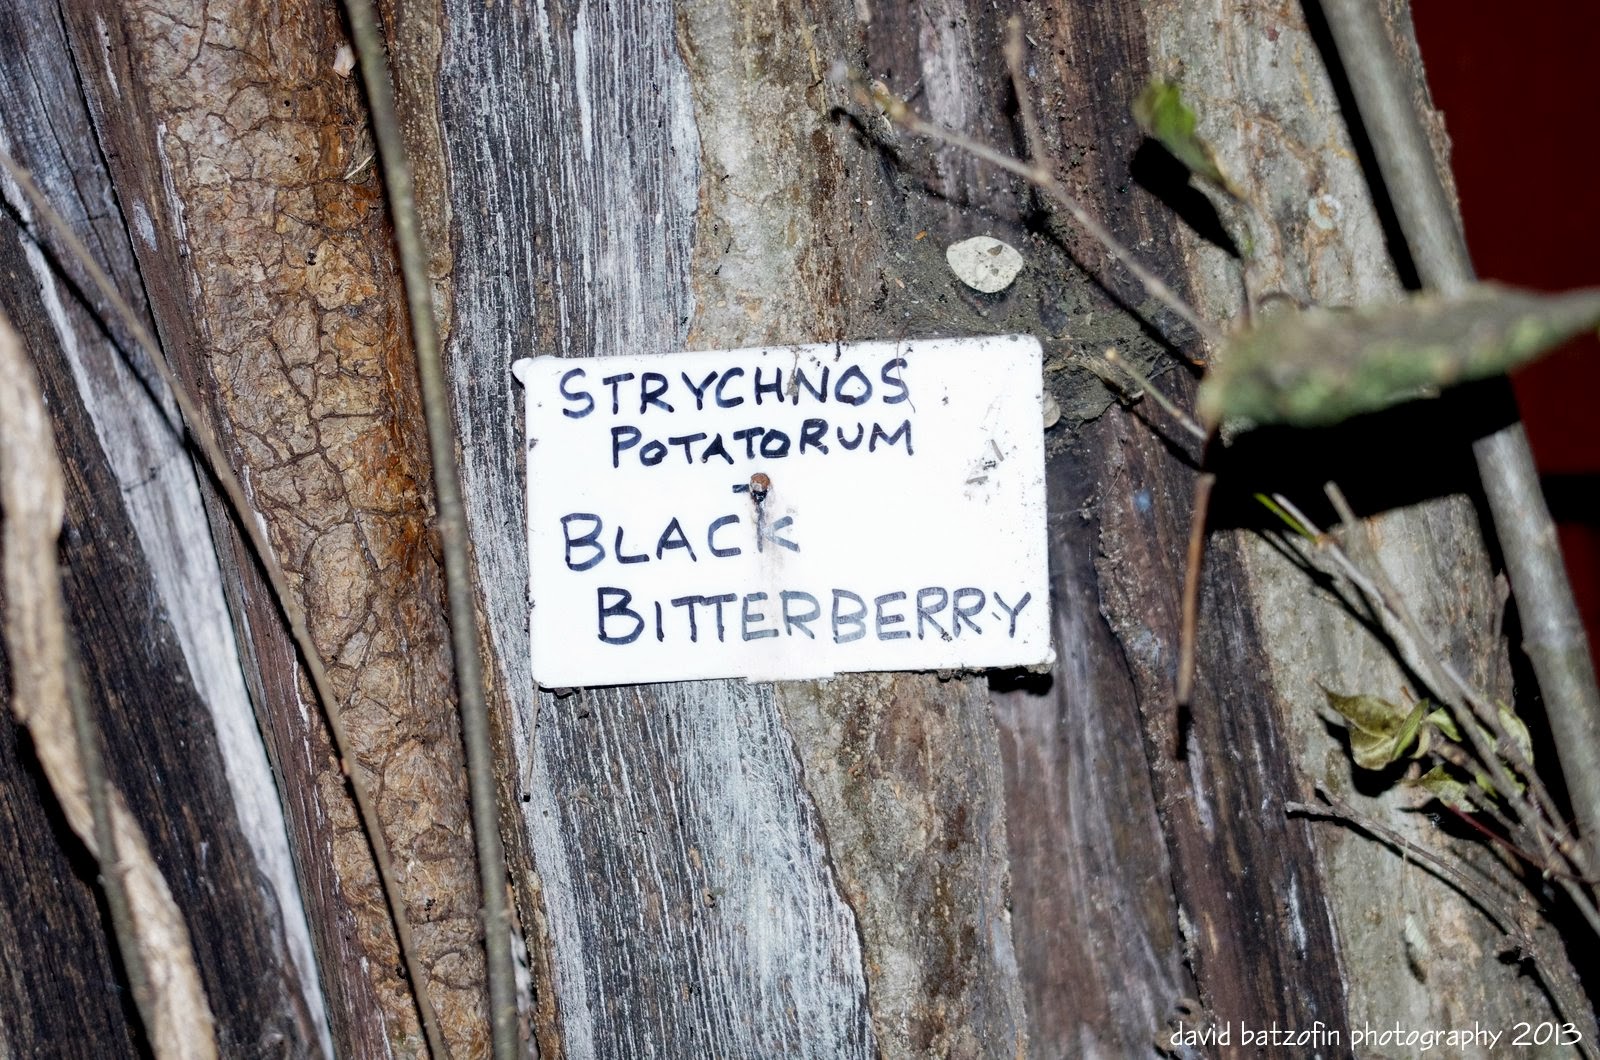 STRYCHNOS
POTATORUM
BLACK
BITTERBERRY
david batzofin photography 2013